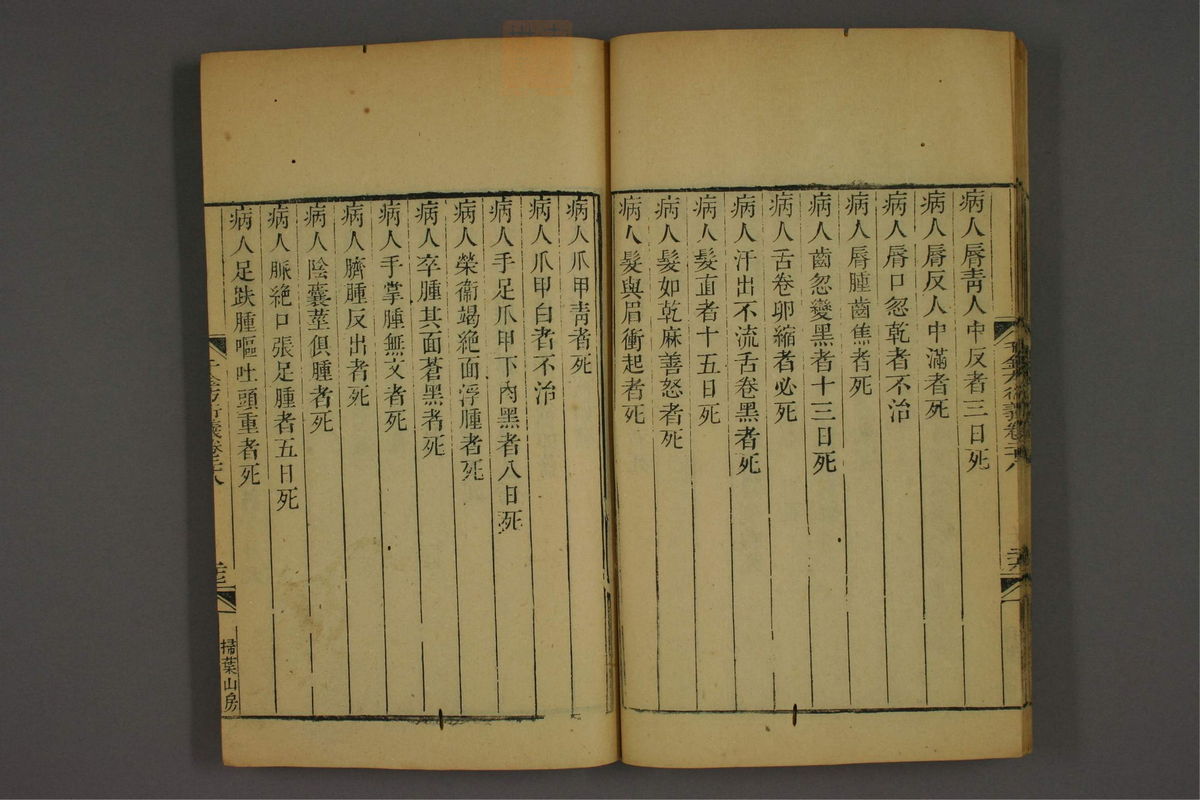 病人脣靑人中反者三日死
病人脣反人中滿者死
病人脣口忽乾者不治
病人脣腫齒焦者死
病人齒忽變黑者十三日死
病人舌卷卵縮者必死
病人汗出不流舌卷黑者死
病人髮直者十五日死
病人髮如乾麻善怒者死
病人髮與眉衝起者死
病人爪甲靑者死
病人爪甲白者不治
病人手足爪甲下肉黑者八日死
病人榮衞竭絶面浮腫者死
病人卒腫其面蒼黑者死
病人手掌腫無文者死
病人臍腫反出者死
病人陰囊莖俱腫者死
病人脈絶口張足腫者五日死
病人足趺腫嘔吐頭重者死
千金方衍義卷二十八
掃葉山房